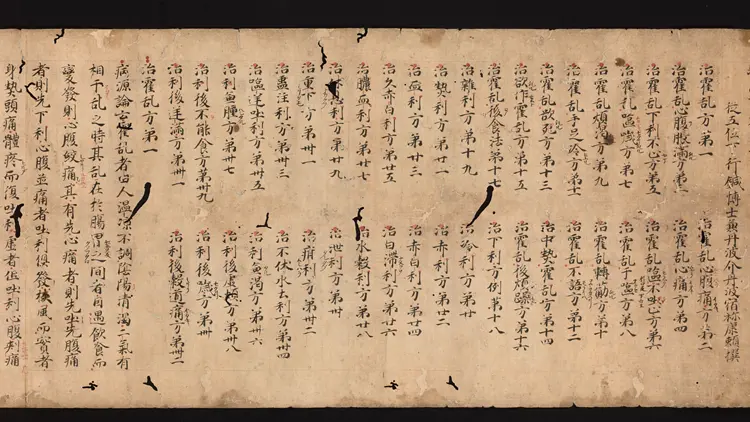 從五位下行鍼博士兼丹波介丹波宿祢康頼撰
治霍乱方第一　治霍乱心腹痛方第二
治霍乱心腹脹満方第三　治霍乱心痛方第四
治霍乱下利不止方第五　治霍乱嘔吐不止方第六
治霍乱嘔噦方第七　治霍乱干嘔方第八
治霍乱煩渇方第九　治霍乱轉筋方第十
治霍乱手足冷方第十一　治霍乱不語方第十二
治霍乱欲死方第十三　治中熱霍乱方第十四
治欲作霍乱方第十五　治霍乱後煩躁方第十六
治霍乱後食法第十七　治下利方例第十八
治雜利方第十九　治冷利方第廿
治熱利方第廿一　治赤利方第廿二
治血利方第廿三　治赤白利方第廿四
治久赤白利方第廿五　治白滞利方第廿六
治膿血利方第廿七　治水穀利方第廿八
治休息利方第廿九　治泄利方第卅
治重下方第卅一　治疳利方第卅二
治蠱注利方第卅三　治不伏水土利方第卅四
治嘔逆吐利方第卅五　治利兼渇方第卅六
治利兼腫方第卅七　治利後虚煩方第卅八
治利後不能食方第卅九　治利後噦方第卌
治利後逆満方第卌一　治利後穀道痛方第卌二
治霍乱方第一
病源論云霍乱者由人温凉不調陰陽清濁二氣有
相干乱之時其乱在於腸胃之間者因遇飲食而
變發則心腹絞痛其有先心痛者則先吐先腹痛
者則先下利心腹並痛者吐利俱發挟風而實者
身熱頭痛體疼而復吐利虚者但吐利心腹刺痛